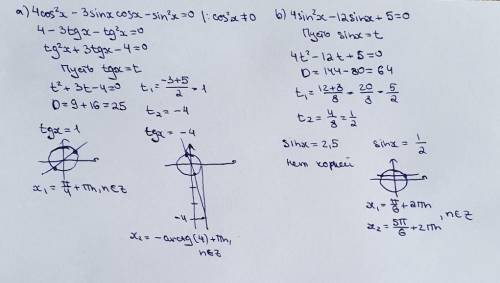 а) 4cos²x - 3sinx cosx - sin²x = 0 |: cos²x ≠ 0
4 - 3tgx - tg²x = 0
tg²x + 3tgx - 4 = 0
Пусть tgx = t
t² + 3t - 4 = 0
D = 9 + 16 = 25
t₁ = (-3+5)/2 = 1
t₂ = -4
tgx = 1
tgx = -4
x₁ = π/4 + πn, n∈Z
-4
x₂ = -arctg(4) + πn,
n∈Z
b) 4sin²x - 12sinx + 5 = 0
Пусть sinx = t
4t² - 12t + 5 = 0
D = 144 - 80 = 64
t₁ = (12+8)/8 = 20/8 = 5/2
t₂ = 4/8 = 1/2
sinx = 2,5
нет корней
sinx = 1/2
x₁ = π/6 + 2πn
x₂ = 5π/6 + 2πn
, n∈Z